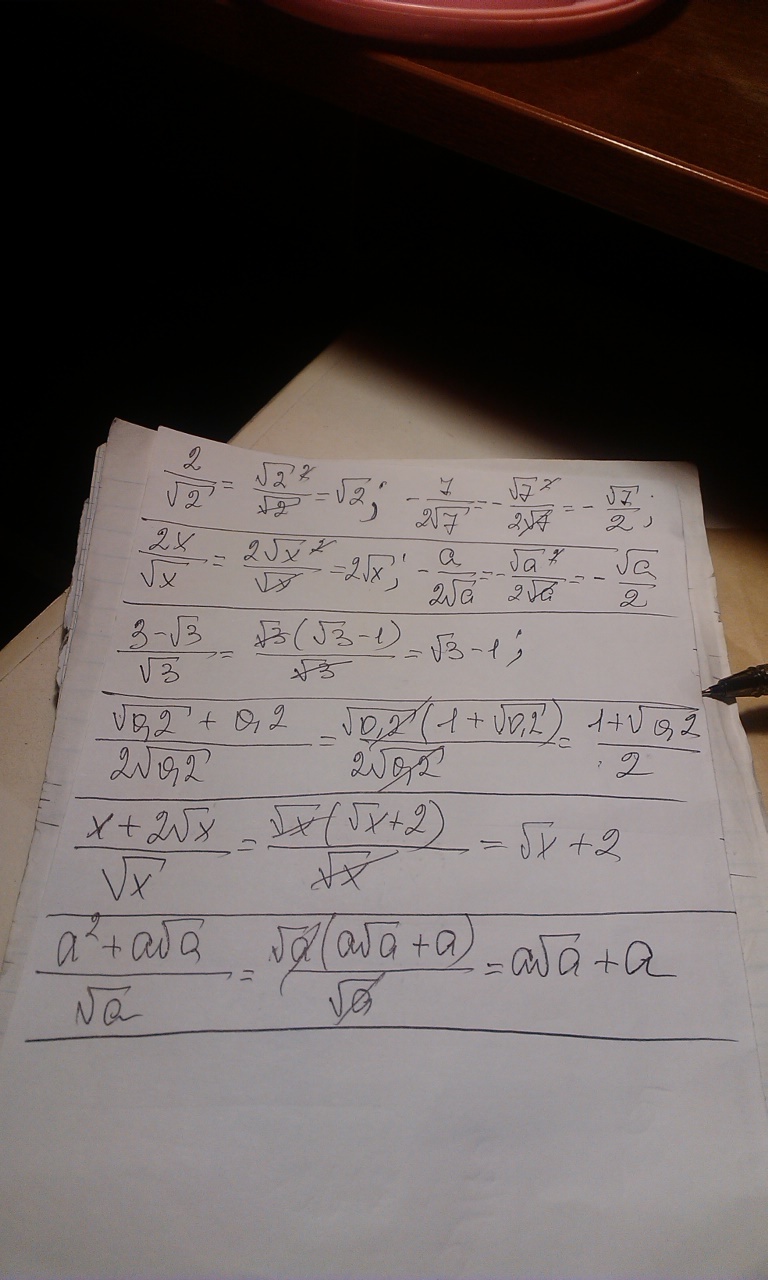 2/√2 = √2²/√2 = √2; -7/2√7 = -√7²/2√7 = -√7/2;
2x/√x = 2√x²/√x = 2√x; -a/2√a = -√a²/2√a = -√a/2
3-√3/√3 = √3(√3-1)/√3 = √3-1;
√0,2 + 0,2/2√0,2 = √0,2(1+√0,2)/2√0,2 = 1+√0,2/2
x+2√x/√x = √x(√x+2)/√x = √x+2
a²+a√a/√a = √a(a√a+a)/√a = a√a+a